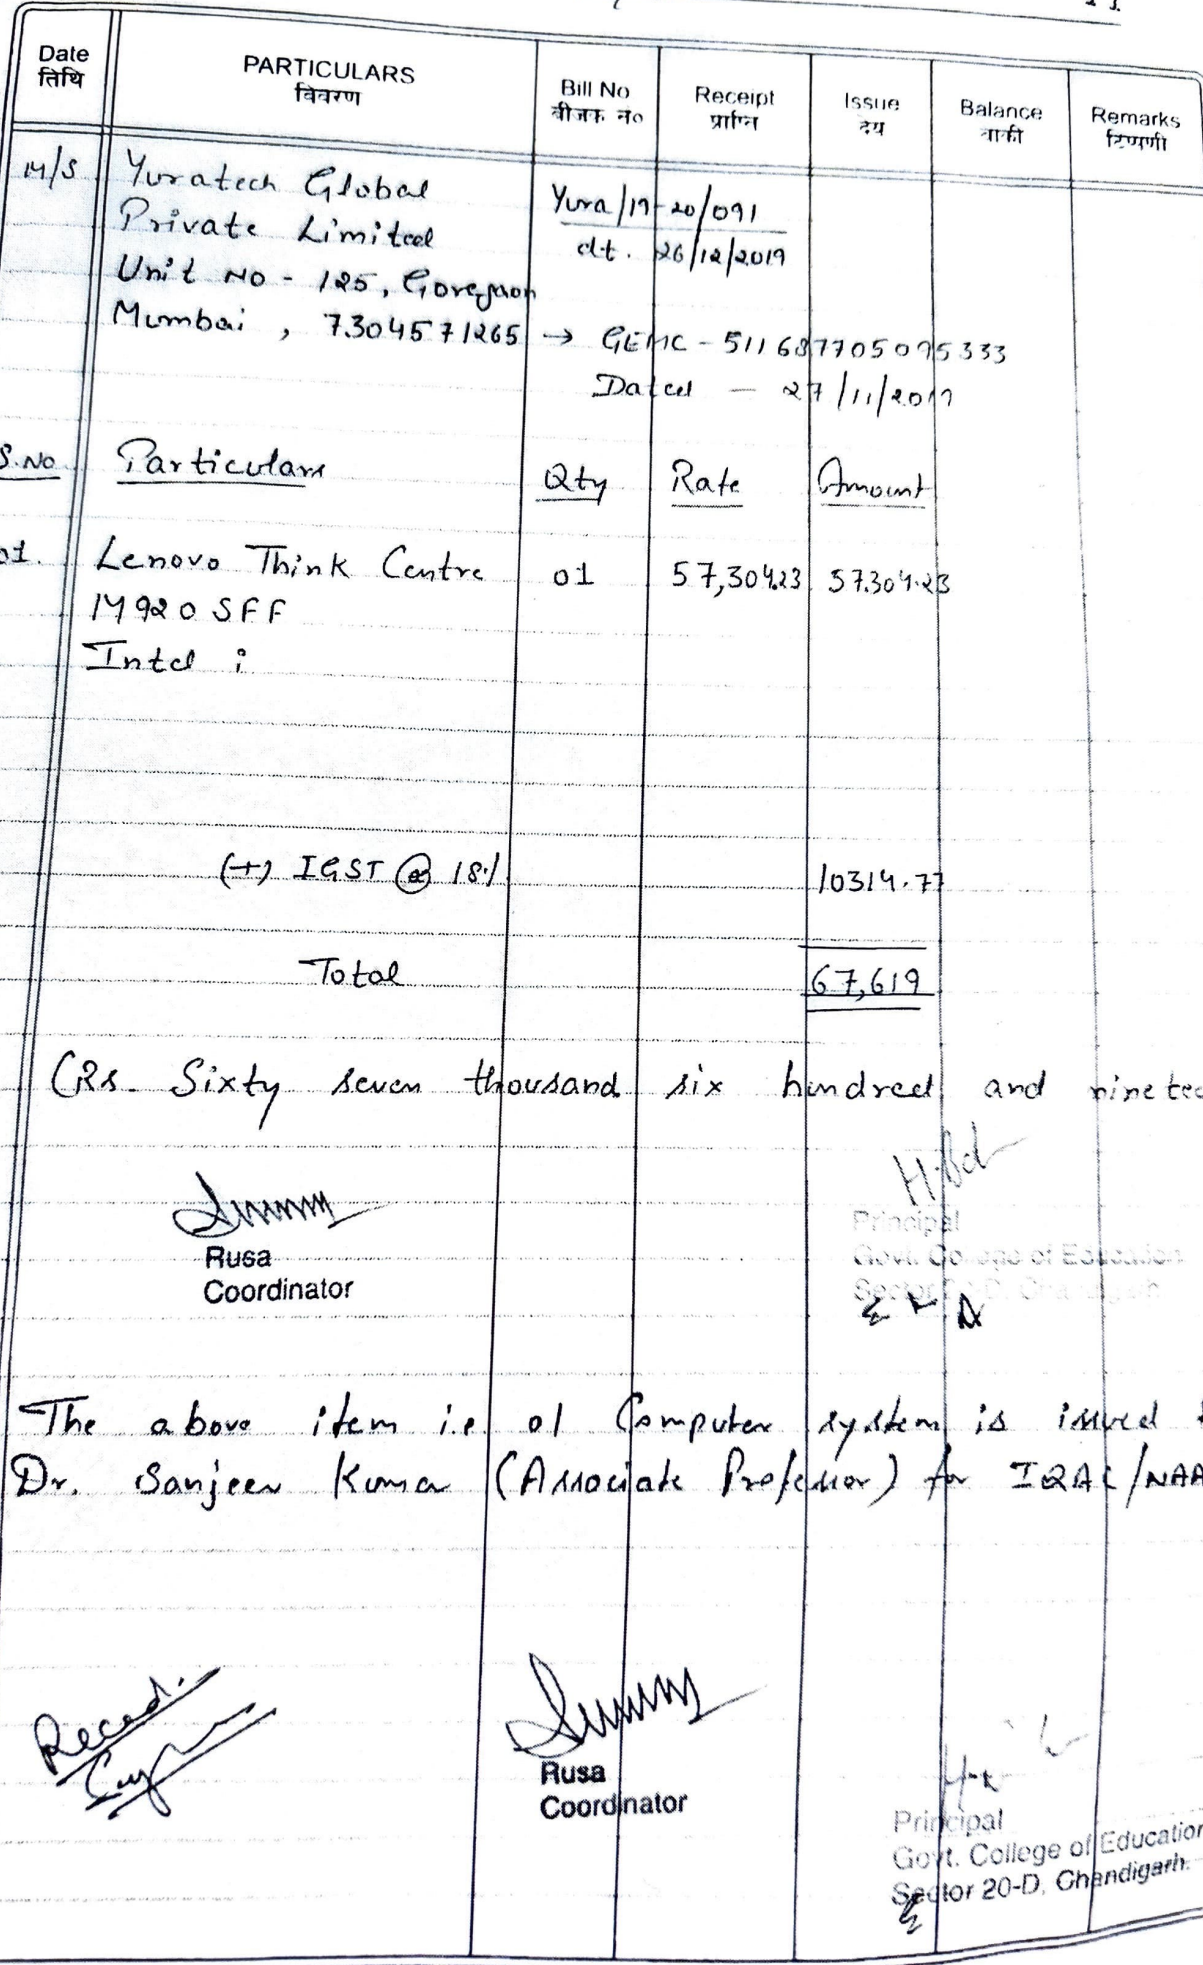 Date PARTICULARS Bill No Receipt Issue Balance Remarks
तिथि विवरण बीजक नं० प्राप्ति देय बाकी टिप्पणी
M/S Yuratech Global Yura/19-20/091
Private Limited dt. 26/12/2019
Unit No - 125, Goregaon
Mumbai, 7304571265 → GEMC - 511687705095333
Dated - 27/11/2019
S.No Particulars Qty Rate Amount
01. Lenovo Think Centre 01 57,304.23 57304.23
M920 SFF
Intel i
(+) IGST @ 18% 10314.77
Total 67,619
(Rs. Sixty seven thousand six hundred and ninetee
Rusa
Coordinator
Principal
Govt. College of Education
Sector 20-D, Chandigarh
The above item i.e. 01 Computer system is issued t
Dr. Sanjeev Kumar (Associate Professor) for IQAC/NAA
Recd.
Rusa
Coordinator
Principal
Govt. College of Education
Sector 20-D, Chandigarh.